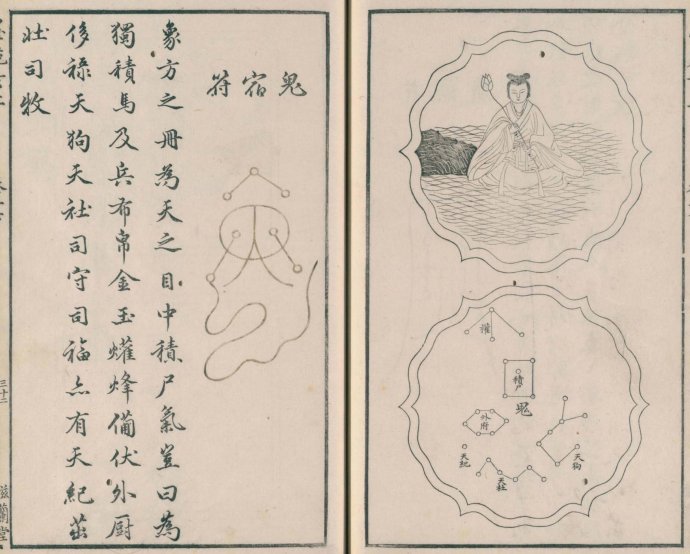 爟
積尸
鬼
外府
天狗
天紀
天社
鬼宿符
象方之冊為天之目中積尸氣豈曰為
獨積馬及兵布帛金玉爟烽備伏外厨
侈祿天狗天社司守司福亦有天紀茁
壯司牧
三十二
滋蘭堂